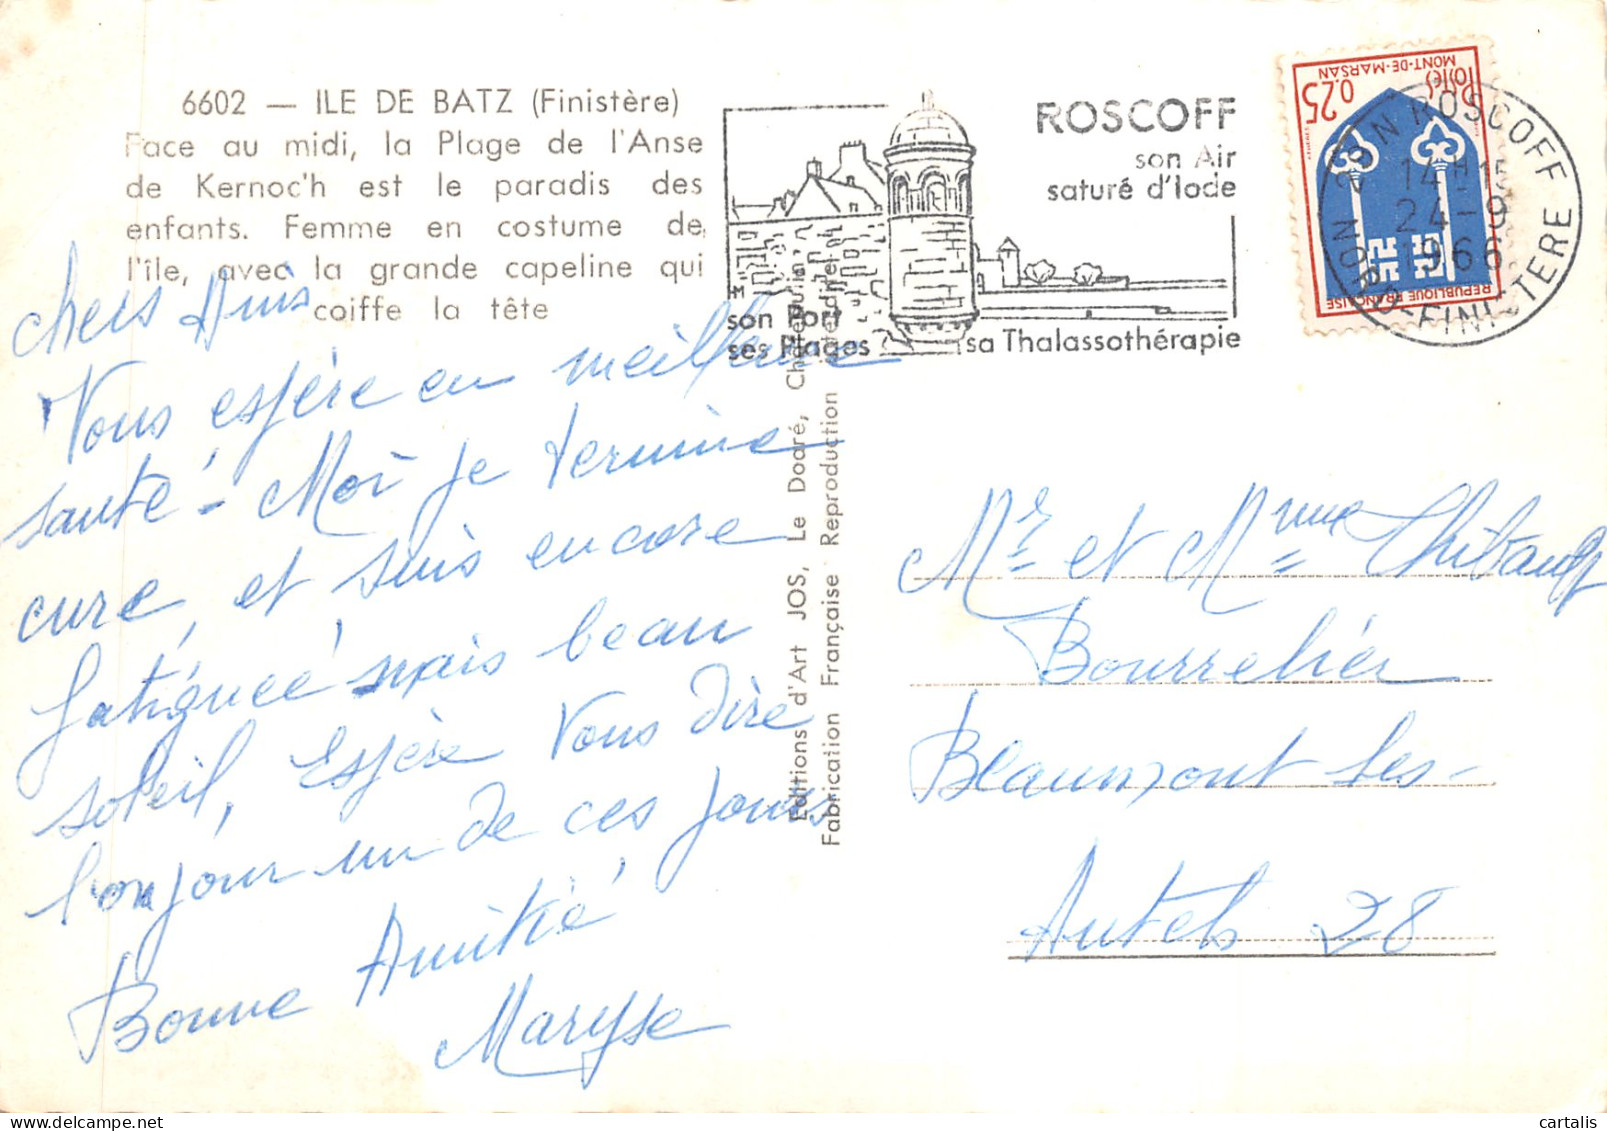 6602 — ILE DE BATZ (Finistère)
Face au midi, la Plage de l'Anse
de Kernoc'h est le paradis des
enfants. Femme en costume de
l'île, avec la grande capeline qui
coiffe la tête
chers Amis
Vous espère en meilleure
santé - Moi je termine
cure, et suis encore
fatiguée mais beau
soleil, Espère Vous dire
bonjour un de ces jours
Bonne Amitié
Maryse
Editions d'Art JOS, Le Doaré, Châteaulin
Fabrication Française Reproduction
ROSCOFF
son Air
saturé d'Iode
son Port
ses Plages
sa Thalassothérapie
0,25
MONT-DE-MARSAN
REPUBLIQUE FRANÇAISE
ROSCOFF
14H15
24-9
1966
FINISTERE
Mr et Mme Thibault
Bourrelier
Beaumont les-
Autels 28
cartalis.com